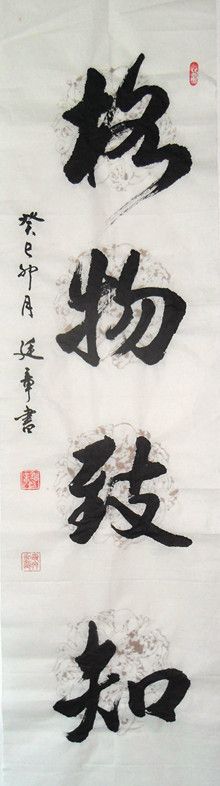 格物致知
癸巳卯月廷章书